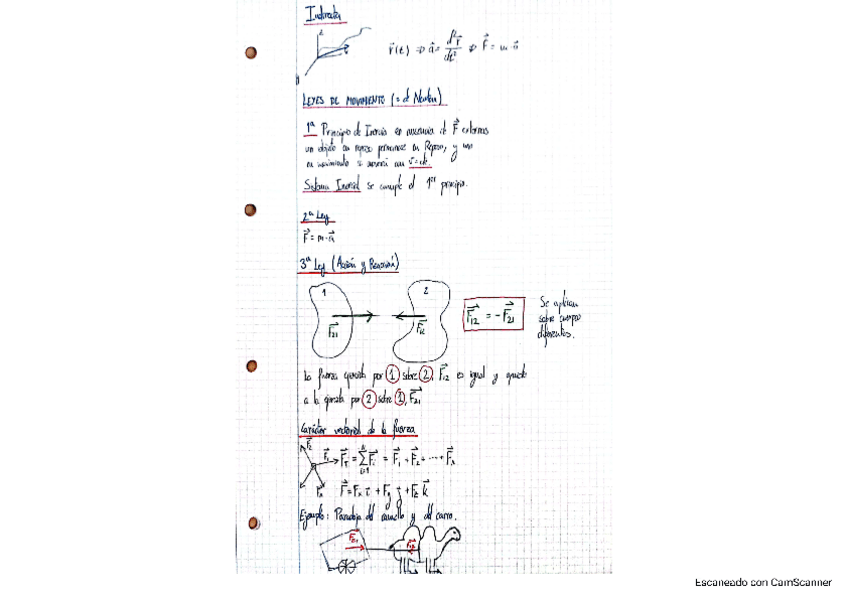 z
r⃗(t) ⇒ a⃗ = d²r⃗/dt² ⇒ F⃗ = m·a⃗
LEYES DE MOVIMIENTO (= de Newton)
1ª Principio de Inercia en ausencia de F⃗ externas
un objeto en reposo permanece en Reposo, y uno
en movimiento se moverá con v⃗=cte.
Sistema Inercial se cumple el 1er principio.
2ª Ley
F⃗ = m·a⃗
3ª Ley (Acción y Reacción)
1
2
F⃗21
F⃗12
F⃗12 = -F⃗21
Se aplican
sobre cuerpos
diferentes.
La fuerza ejercida por 1 sobre 2, F⃗12 es igual y opuesta
a la ejercida por 2 sobre 1, F⃗21
Carácter vectorial de la fuerza
F⃗2
F⃗1
F⃗T = ΣF⃗i = F⃗1 + F⃗2 + ... + F⃗n
F⃗n
F⃗ = Fx i⃗ + Fy j⃗ + Fz k⃗
Ejemplo: Paradoja del camello y del carro.
F⃗21
F⃗12
Escaneado con CamScanner